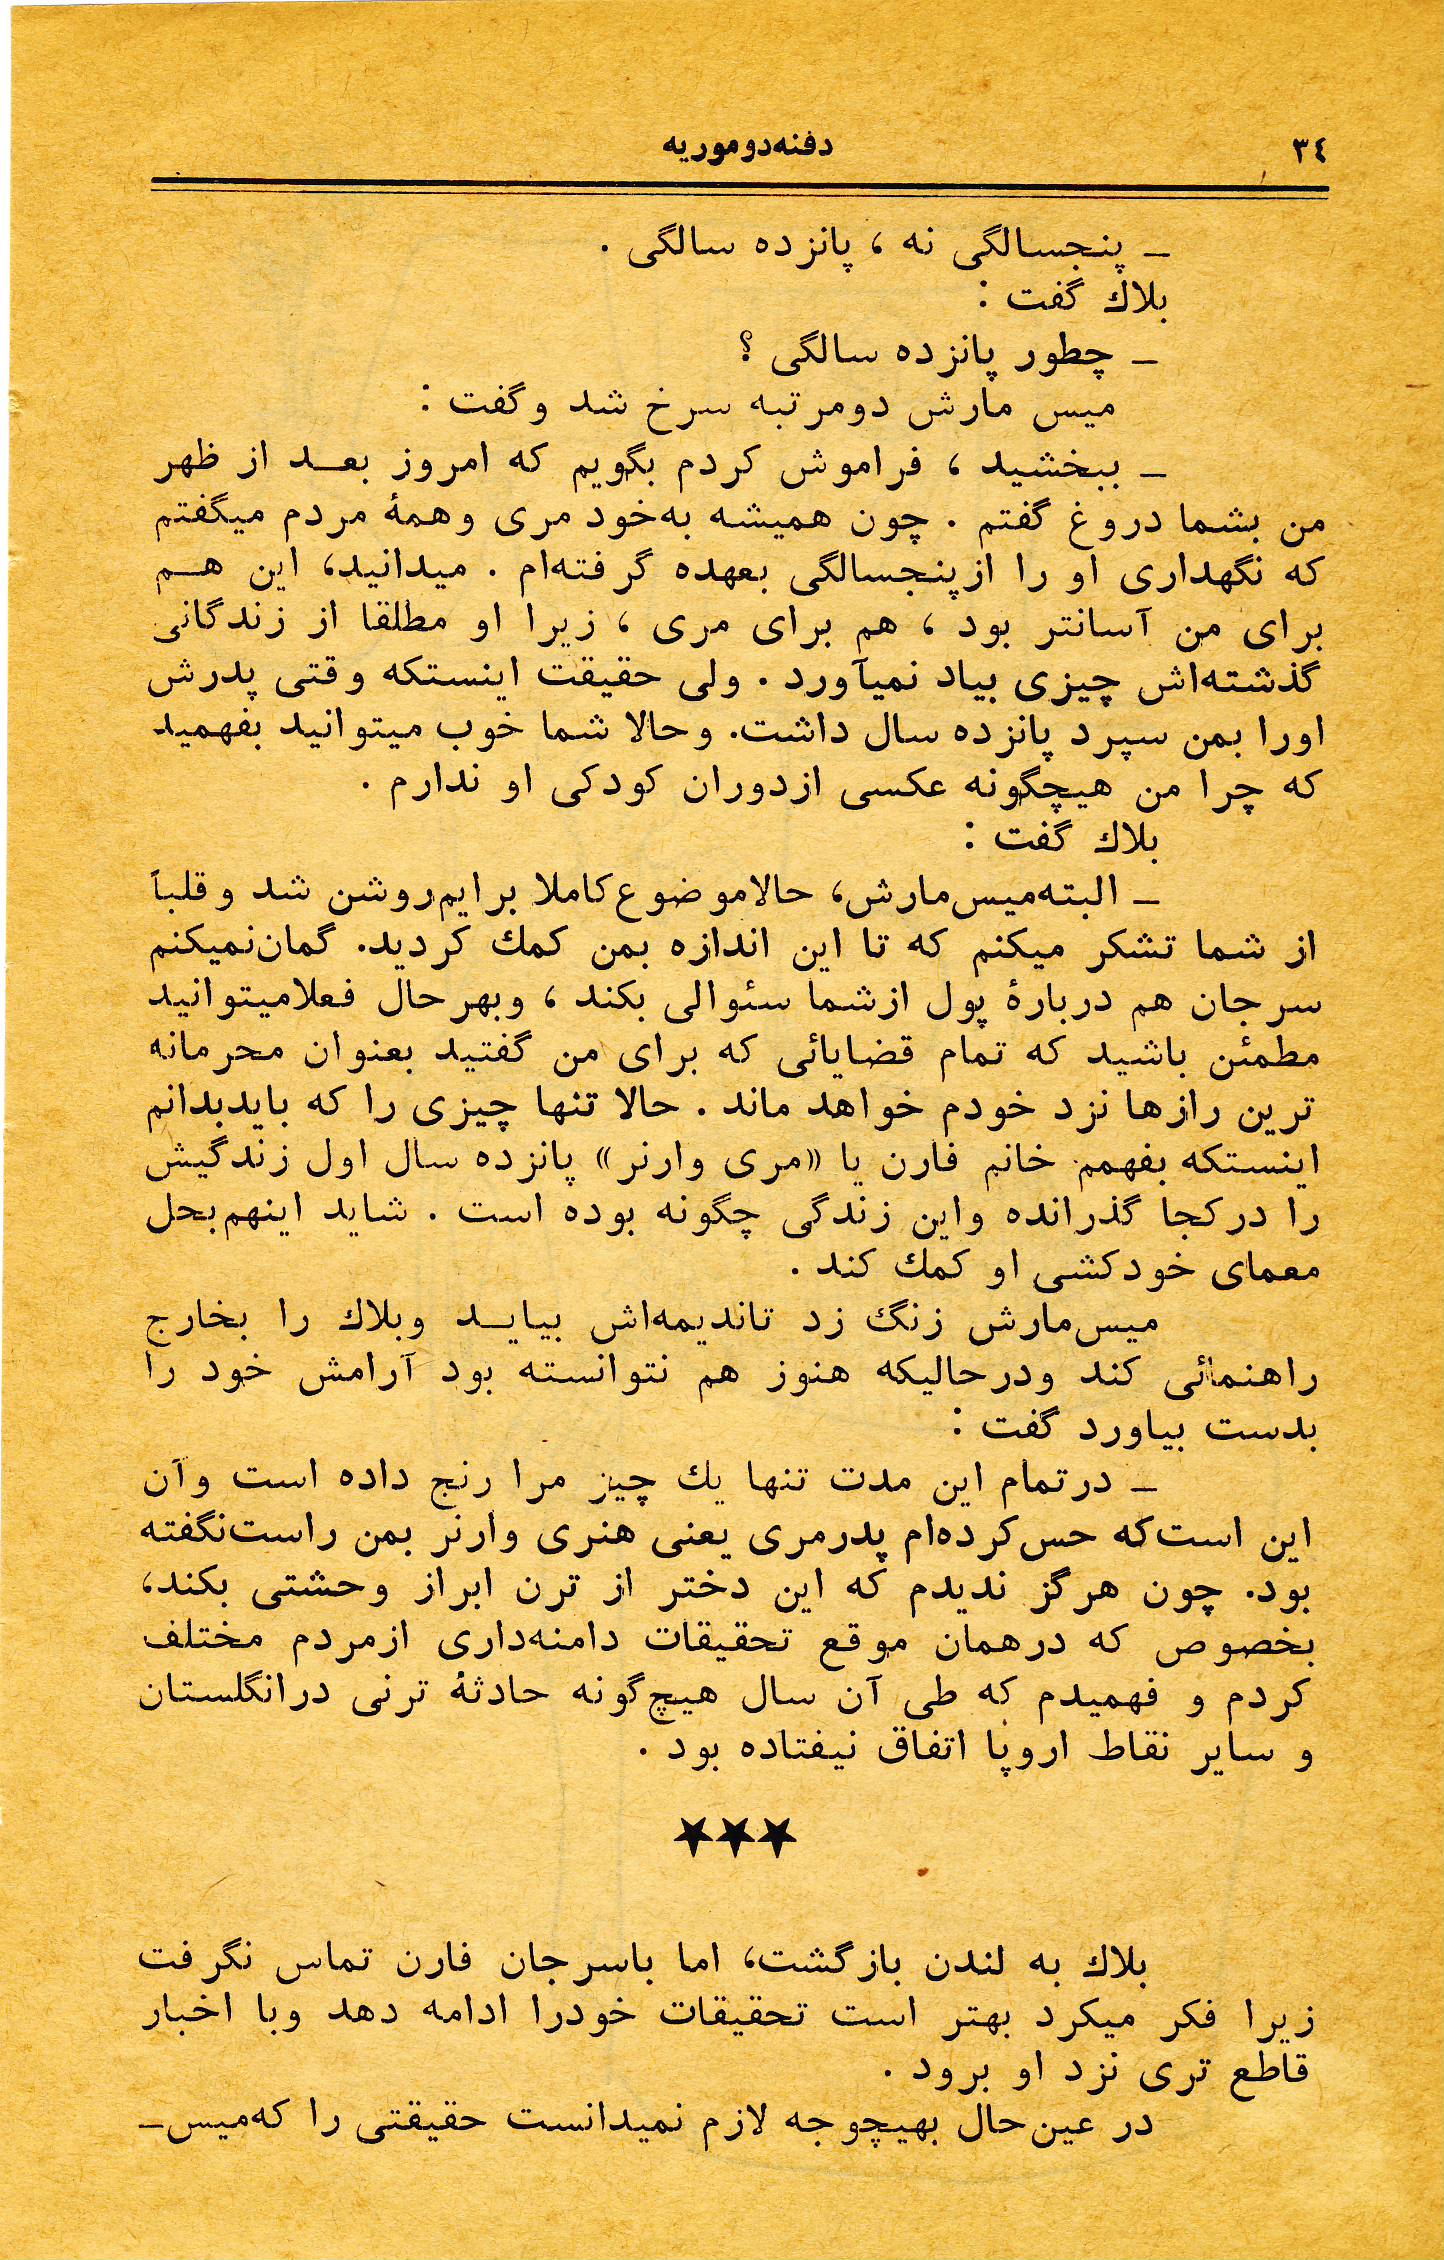 ۳٤
دفنه‌دوموریه
ـ پنجسالگی نه ، پانزده سالگی .
بلاك گفت :
ـ چطور پانزده سالگی ؟
میس مارش دومرتبه سرخ شد وگفت :
ـ ببخشید ، فراموش کردم بگویم که امروز بعـد از ظهر
من بشما دروغ گفتم . چون همیشه به‌خود مری وهمهٔ مردم میگفتم
که نگهداری او را ازپنجسالگی بعهده گرفته‌ام . میدانید، این هـم
برای من آسانتر بود ، هم برای مری ، زیرا او مطلقا از زندگانی
گذشته‌اش چیزی بیاد نمیآورد . ولی حقیقت اینستکه وقتی پدرش
اورا بمن سپرد پانزده سال داشت. وحالا شما خوب میتوانید بفهمید
که چرا من هیچگونه عکسی ازدوران کودکی او ندارم .
بلاك گفت :
ـ البته‌میس‌مارش، حالاموضوع‌کاملا برایم‌روشن شد وقلباً
از شما تشکر میکنم که تا این اندازه بمن کمك کردید. گمان‌نمیکنم
سرجان هم دربارهٔ پول ازشما سئوالی بکند ، وبهرحال فعلامیتوانید
مطمئن باشید که تمام قضایائی که برای من گفتید بعنوان محرمانه
ترین رازها نزد خودم خواهد ماند . حالا تنها چیزی را که بایدبدانم
اینستکه بفهمم خانم فارن یا «مری وارنر» پانزده سال اول زندگیش
را درکجا گذرانده واین زندگی چگونه بوده است . شاید اینهم‌بحل
معمای خودکشی او کمك کند .
میس‌مارش زنگ زد تاندیمه‌اش بیایـد وبلاك را بخارج
راهنمائی کند ودرحالیکه هنوز هم نتوانسته بود آرامش خود را
بدست بیاورد گفت :
ـ درتمام این مدت تنها یك چیز مرا رنج داده است وآن
این است‌که حس‌کرده‌ام پدرمری یعنی هنری وارنر بمن راست‌نگفته
بود. چون هرگز ندیدم که این دختر از ترن ابراز وحشتی بکند،
بخصوص که درهمان موقع تحقیقات دامنه‌داری ازمردم مختلف
کردم و فهمیدم که طی آن سال هیچ‌گونه حادثهٔ ترنی درانگلستان
و سایر نقاط اروپا اتفاق نیفتاده بود .
★★★
بلاك به لندن بازگشت، اما باسرجان فارن تماس نگرفت
زیرا فکر میکرد بهتر است تحقیقات خودرا ادامه دهد وبا اخبار
قاطع تری نزد او برود .
در عین‌حال بهیچوجه لازم نمیدانست حقیقتی را که‌میس‌ـ